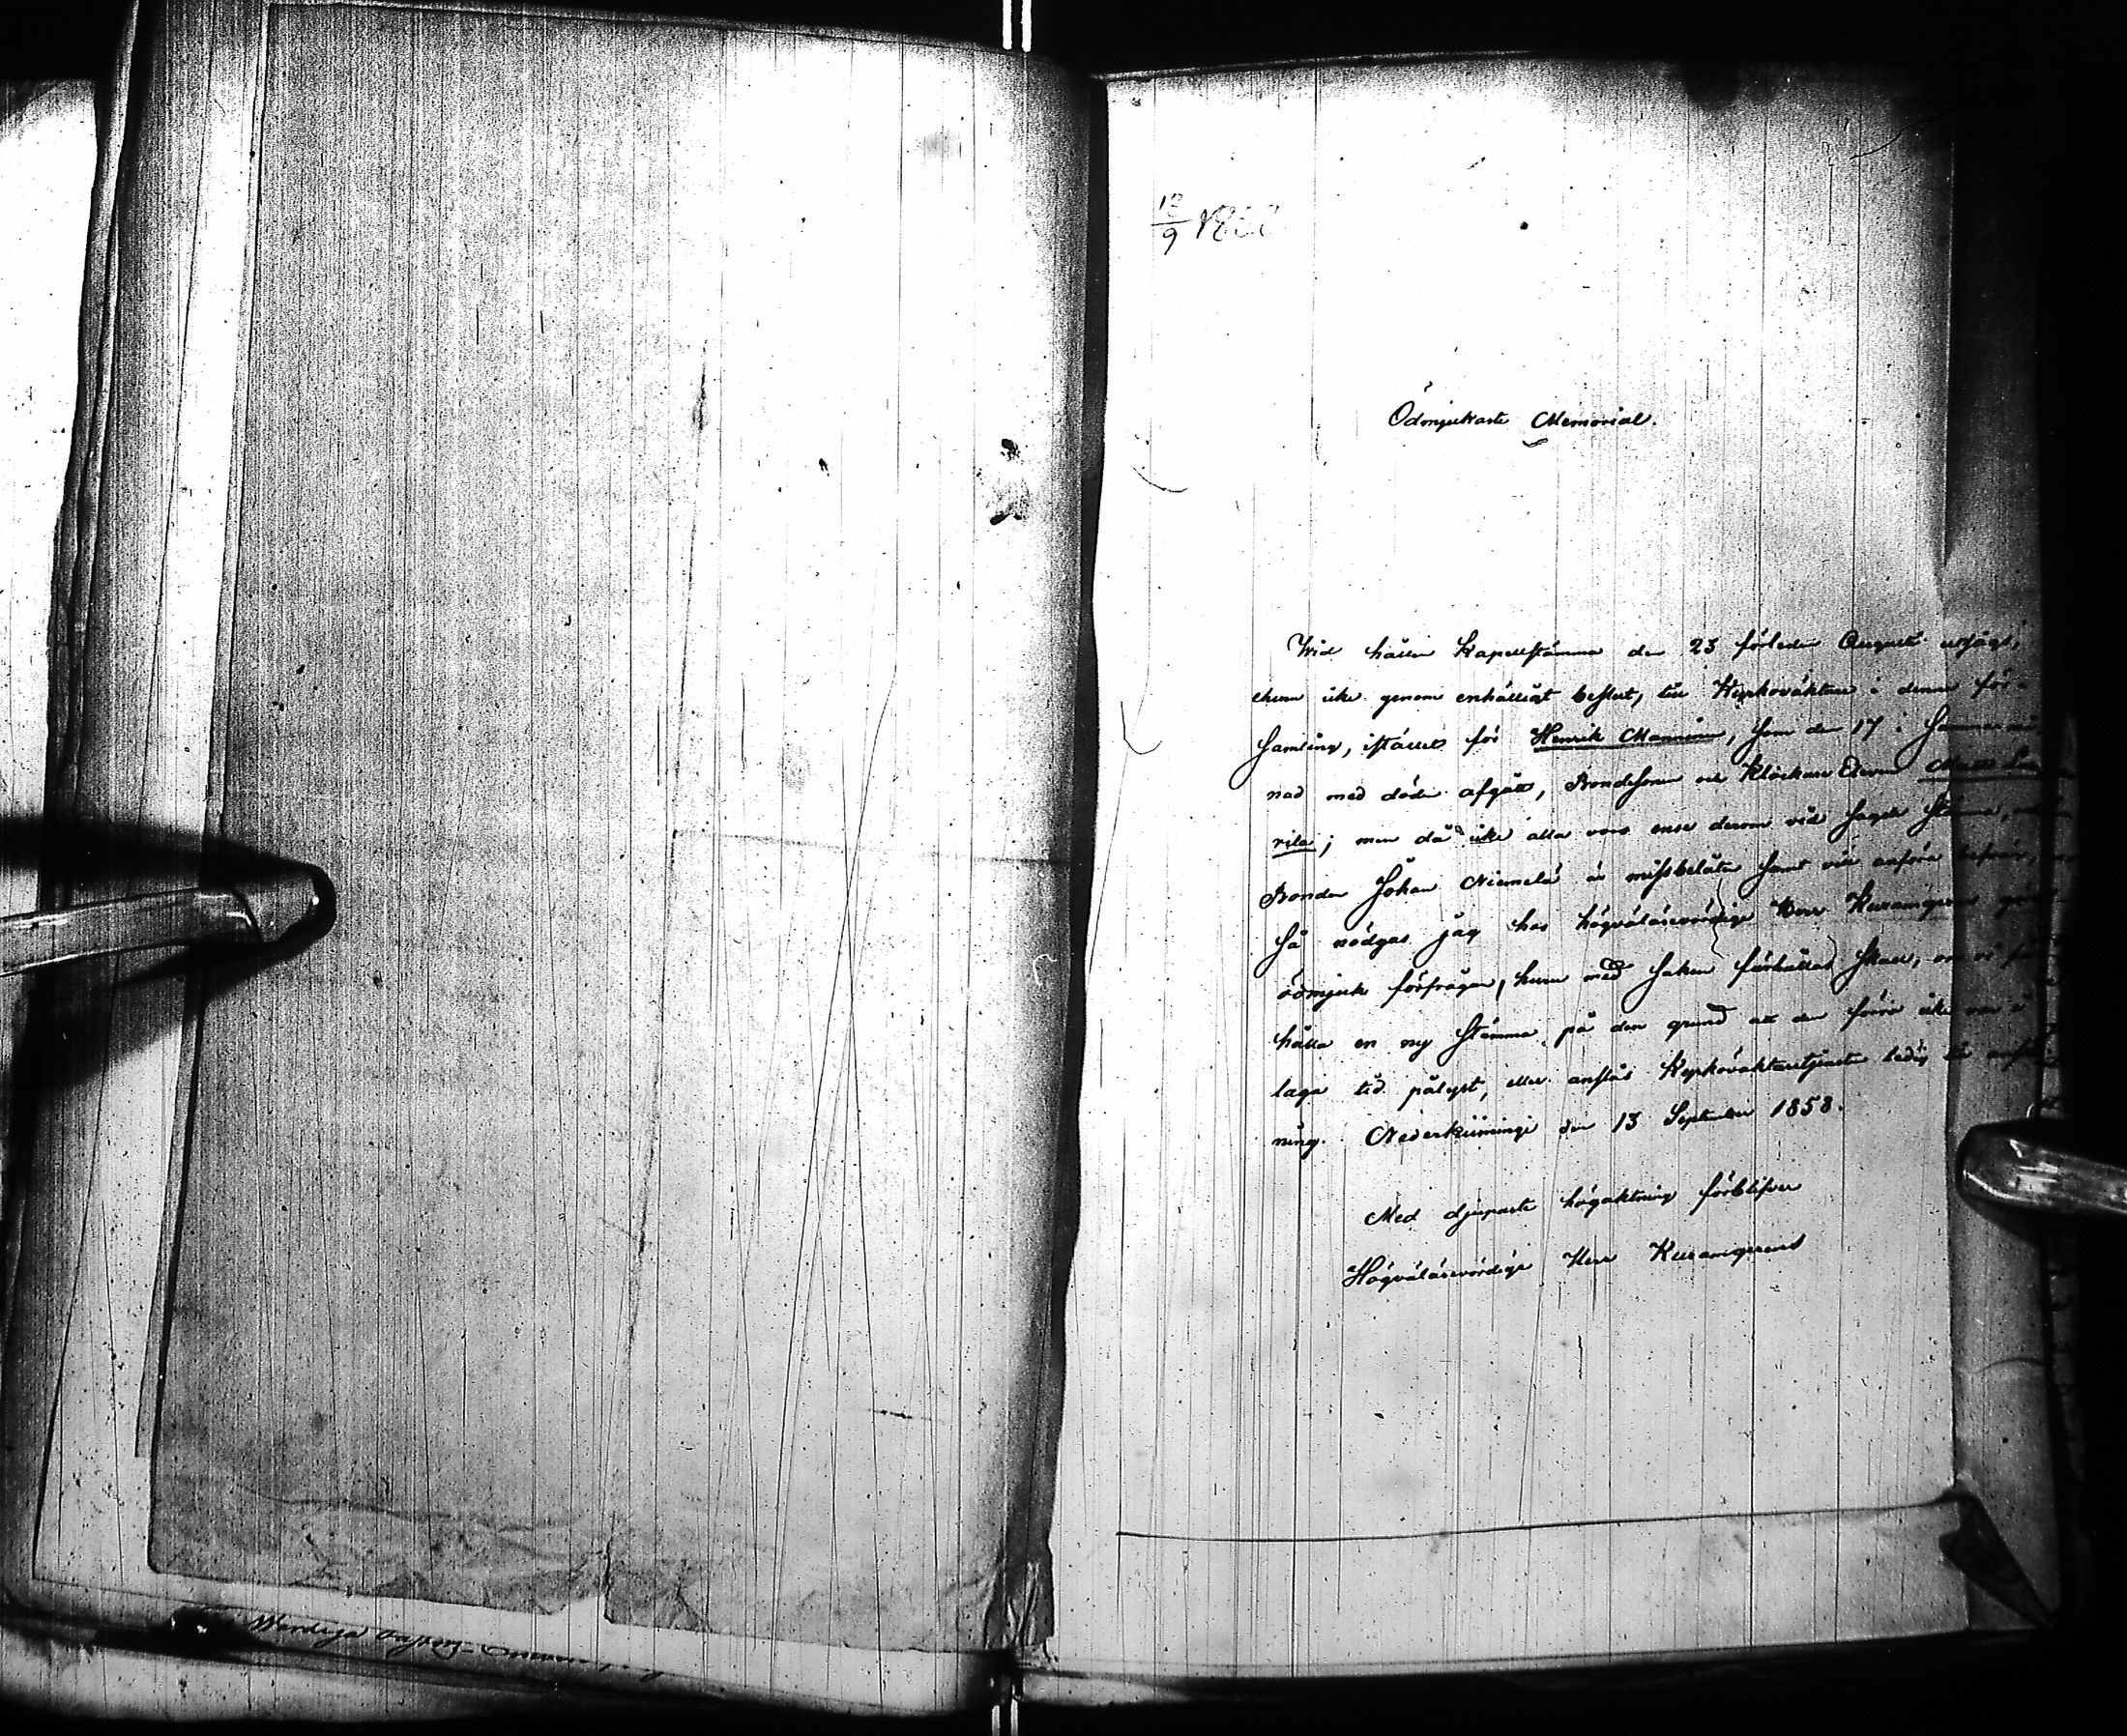 13/9 1858
Ödmjukaste Memorial.
Wid hållen Kapellstämma den 23 förleden Augusti utsågs,
ehuru icke genom enhälligt beslut, till Kyrkoväktare i denna för-
samling, istället för Henrik Manninen, som den 17 i samma må-
nad med döden afgått, Bondesonen och Klockare Eleven Matts
rila; men då icke alla voro ense derom vid sagde stämma,
Bonden Johan Niemelä är missbelåten samt vill anföra besvär,
så nödgas jag hos högvälärevördige Herr Kuramgeren göra
ödmjuk förfrågan, huru med saken förhållas skall, om vi få
hålla en ny stämma på den grund att den förra icke var i
laga tid pålyst, eller anslås Kyrkoväktaretjensten ledig till ansök-
ning. Nederkiiminge den 13 September 1858.
Med djupaste högaktning förblifver
Högvälärevördige Herr Kuramgerens
Werdiga